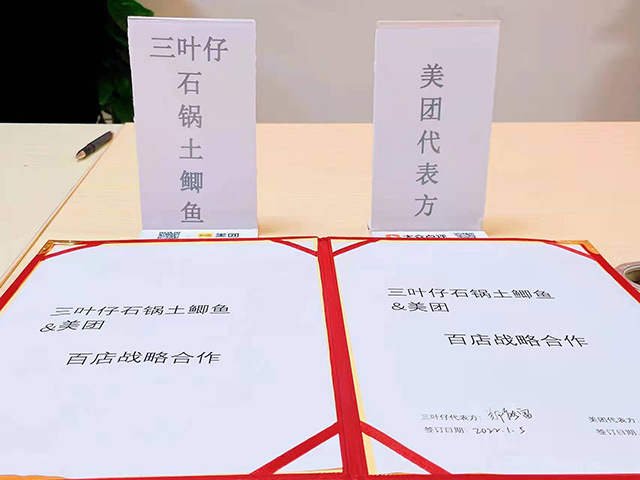 三叶仔
石锅土鲫鱼
美团
美团代表方
大众点评
三叶仔石锅土鲫鱼
&美团
百店战略合作
三叶仔石锅土鲫鱼
&美团
百店战略合作
三叶仔代表方:
签订日期: 2022.1.5
美团代表方
签订日期: